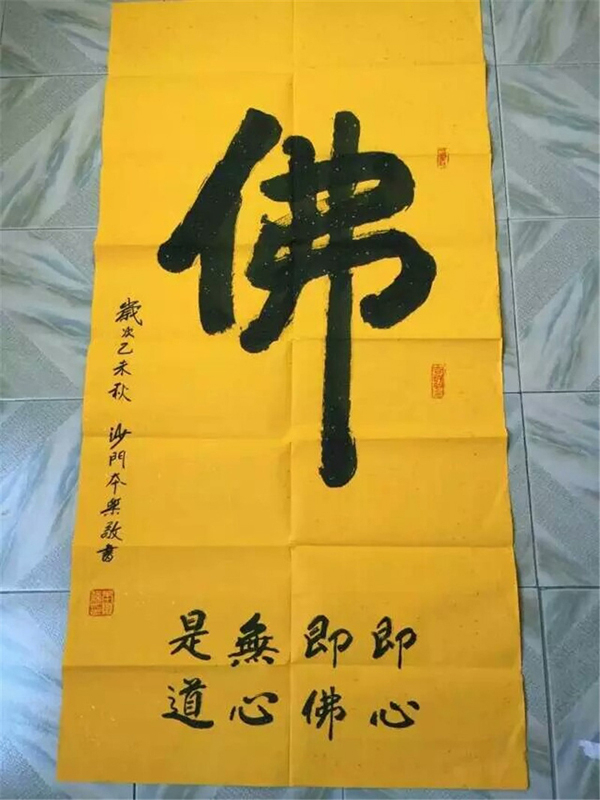 佛
即心
即佛
無心
是道
歲次乙未秋 沙門本樂敬書